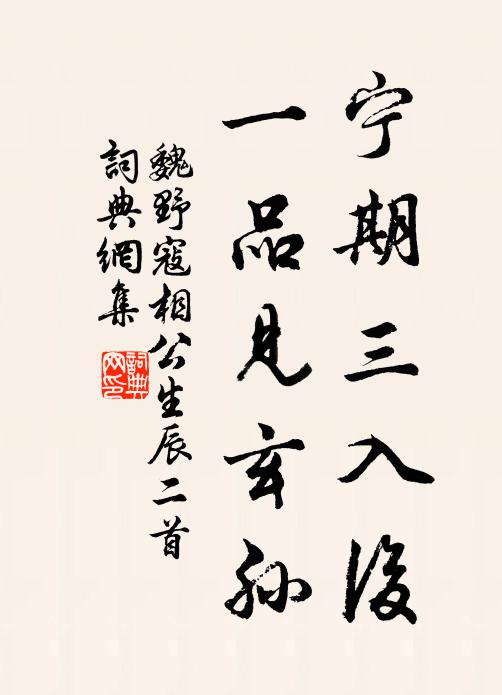 宁期三入後
一品見玄孙
魏野寇相公生辰二首
詞典網集
詞典网印